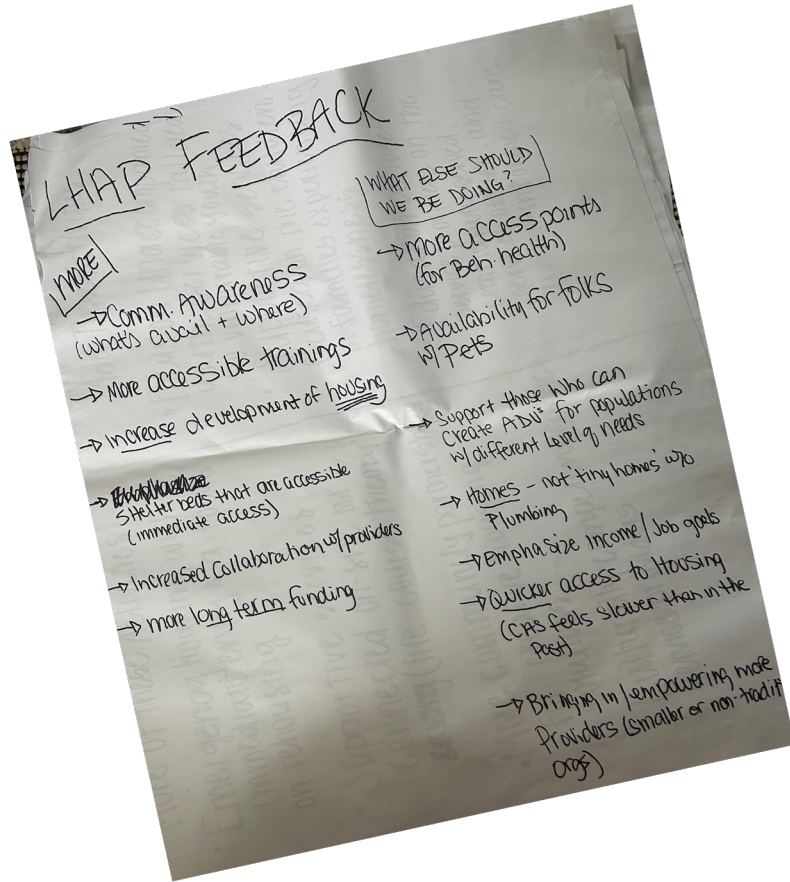 LHAP FEEDBACK
MORE
→ Comm. Awareness
(what's avail + where)
→ More accessible trainings
→ Increase development of housing
→ Shelter beds that are accessible
(immediate access)
→ Increased collaboration w/ providers
→ more long term funding
WHAT ELSE SHOULD
WE BE DOING?
→ More access points
(for Beh. health)
→ Availability for Folks
w/ Pets
→ Support those who can
create ADU's for populations
w/ different level of needs
→ Homes - not 'tiny homes' w/o
Plumbing
→ Emphasize Income/Job goals
→ Quicker access to Housing
(CAS feels slower than in the
Past)
→ Bringing in/empowering more
Providers (smaller or non-tradit
orgs)